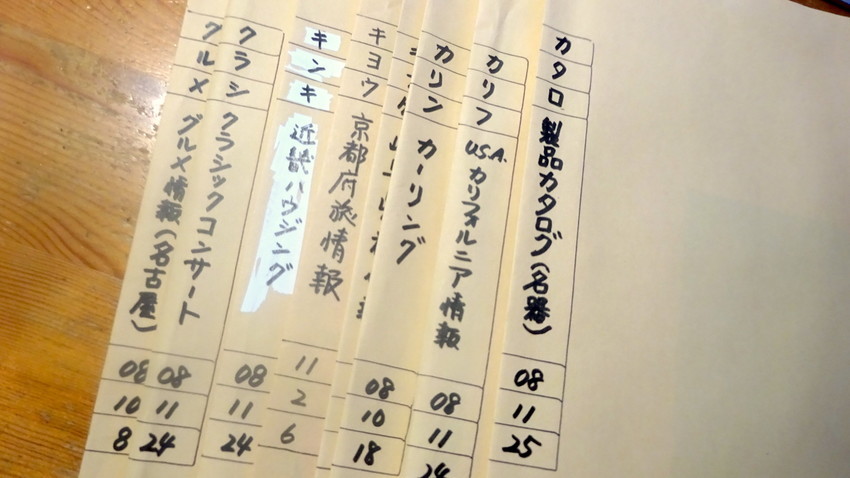 カタロ
製品カタログ(名器)
08
11
25
カリフ
USA. カリフォルニア情報
08
11
24
カリン
カーリング
08
10
18
キヨウ
京都府旅情報
11
2
6
キンキ
近畿ハウジング
08
11
24
クラシ
クラシックコンサート
08
11
24
グルメ
グルメ情報(名古屋)
08
10
8